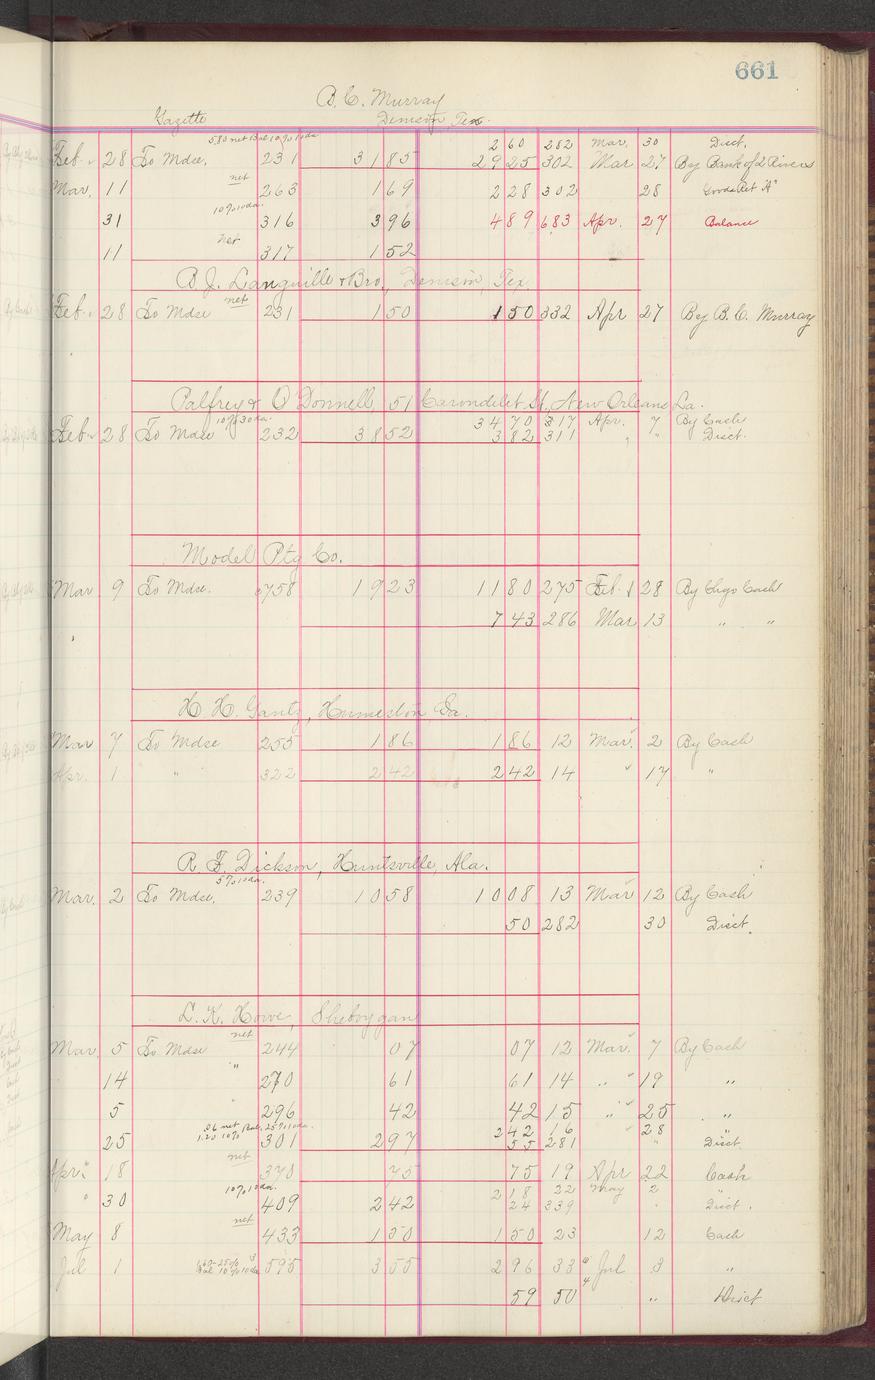 661
B. C. Murray
Gazette Denison, Tex.
5.80 net Bal 10% 10 da 2 60 282 Mar. 30 Disct.
Feb. 28 To Mdse. 231 31 85 29 25 302 Mar 27 By Bank of 2 Rivers
Mar. 11 net 263 1 69 2 28 302 28 Goods Ret "A"
10% 10 da.
31 316 3 96 4 89 683 Apr. 27 Balance
11 net 317 1 52
B. J. Languille & Bro, Denison, Tex.
Feb. 28 To Mdse net 231 1 50 1 50 332 Apr 27 By B. C. Murray
Palfrey & O'Donnell, 51 Carondelet St, New Orleans La.
10% 30 da. 34 70 317 Apr. 7 By Cash
Feb. 28 To Mdse 232 38 52 3 82 311 " " Disct.
Model Ptg Co.
Mar 9 To Mdse. 758 19 23 11 80 275 Feb. 28 By Chgo Cash
7 43 286 Mar 13 " "
H. H. Gantz, Humeston Ia.
Mar 7 To Mdse 255 1 86 1 86 12 Mar. 2 By Cash
Apr. 1 " 322 2 42 2 42 14 " 17 "
R. F. Dickson, Huntsville, Ala.
5% 10 da.
Mar. 2 To Mdse. 239 10 58 10 08 13 Mar 12 By Cash
50 282 30 Disct.
L. K. Howe, Sheboygan
net
Mar. 5 To Mdse 244 07 07 12 Mar. 7 By Cash
14 " 270 61 61 14 " 19 "
5 " 296 42 42 15 " 25 "
.06 net Bal. 25% 10 da. 2 42 16 " 28 "
25 1.20 10% 301 2 97 55 281 " Disct.
Apr. 18 net 370 75 75 19 Apr 22 Cash
10% 10 da. 2 18 22 May 2 "
" 30 409 2 42 24 339 " Disct.
May 8 net 433 1 50 1 50 23 12 Cash
Jul 1 Bal 10% 10 da 595 3 55 2 96 33 Jul 3 "
59 50 " Disct